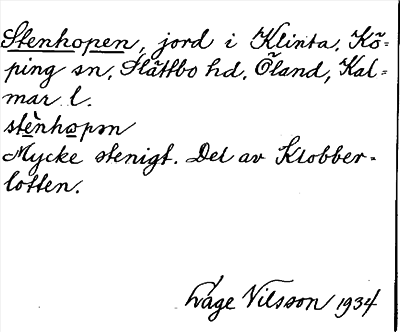 Stenhopen, jord i Klinta, Kö-
ping sn, Slättbo hd, Öland, Kal-
mar l.
stènhopən
Mycke stenigt. Del av Klobber-
lotten.
Åage Nilsson 1934